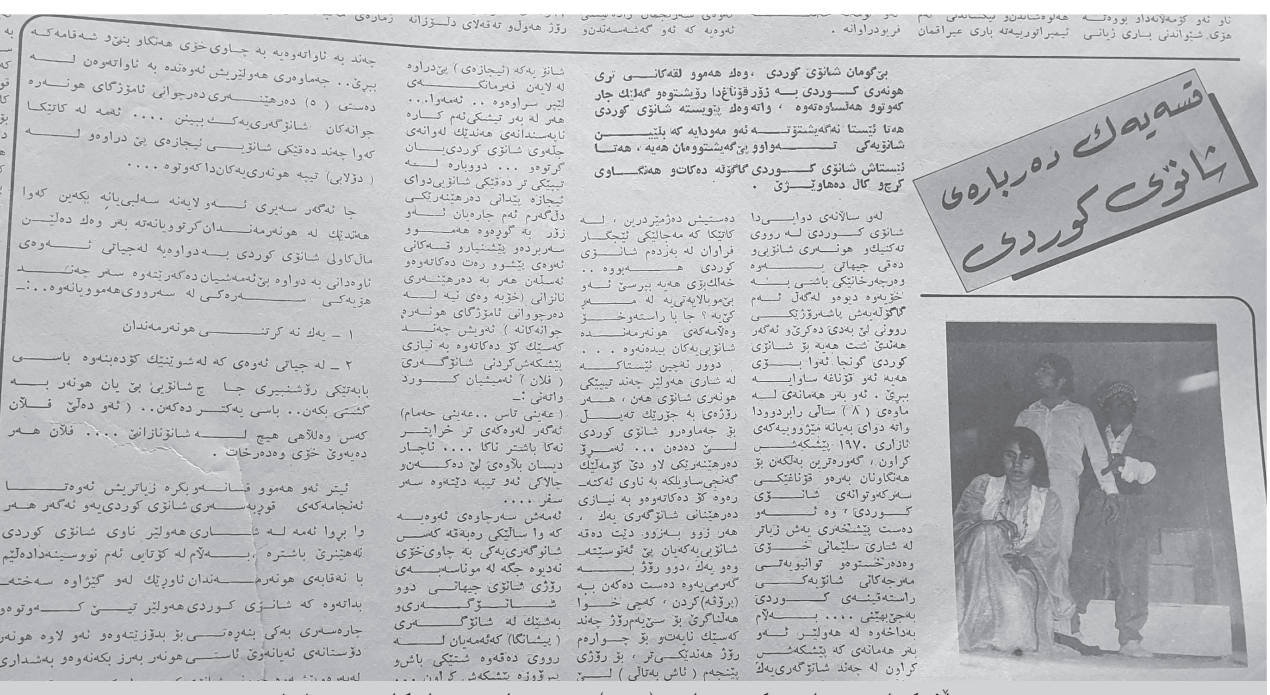 قسەیەك دەربارەی
شانۆی کوردی
بێ‌گومان شانۆی کوردی ، وەك هەموو لقەکانی تری
هونەری کوردی بە زۆر قۆناغدا رۆیشتوەو گەلێك جار
کەوتوو هەڵساوەتەوە ، واتە‌وەك پێویستە شانۆی کوردی
هەتا ئێستا نەگەیشتۆتە ئەو مەودایە کە بڵێین
شانۆیەکی تەواوو پێ‌گەیشتوومان هەیە ، هەتا
ئێستاش شانۆی کوردی گاگۆلە دەکات‌و هەنگاوی
کرچ‌و کاڵ دەهاوێژێ .
لەو ساڵانەی دوایی‌دا
شانۆی کوردی لە رووی
تەکنیك‌و هونەری شانۆیی‌و
دەقی جیهانی یەوە
وەرچەرخانێکی باشی بە
خۆیەوە دیوەو لەگەڵ ئەم
گاگۆلەیەش پاشەرۆژێکی
روونی لێ بەدی دەکرێ‌و ئەگەر
هەندێ شت هەیە بۆ شانۆی
کوردی گونجا ئەوا بۆی
هەیە ئەو قۆناغە ساوایە
ببڕێ . ئەو بەر هەمانەی لە
ماوەی ( ٨ ) ساڵی رابردوودا
واتە دوای بەیانە مێژووییەکەی
ئازاری ١٩٧٠ پێشکەش
کراون ، گەورەترین بەڵگەن بۆ
هەنگاونان بەرەو قۆناغێکی
سەرکەوتوانەی شانۆی
کوردی ، وە ئەو
دەست پێشخەری یەش زیاتر
لە شاری سلێمانی خۆی
وەدەرخستوەو توانیویەتی
مەرجەکانی شانۆیەکی
راستەقینەی کوردی
بەجێ‌بهێنێ .... بەڵام
بەداخەوە لە هەولێر ئەو
بەر هەمانەی کە پێشکەش
کراون لە چەند شانۆگەری‌یەك
دەستیش دەژمێردرێن ، لە
کاتێکا کە مەجالێکی ئێجگار
فراوان لە بەردەم شانۆی
کوردی هەبووە ..
خەڵك‌بۆی هەیە بپرسێ ئەو
بێ‌موبالایەتی‌یە لە مەر
کێ‌یە ؟ جا با راستەوخۆ
وەڵامەکەی هونەرمەندە
شانۆیی‌یەکان بیدەنەوە ...
دوور نەچین ئێستاکە
لە شاری هەولێر چەند تیپێکی
هونەری شانۆی هەن ، هەر
رۆژەی بە جۆرێك تەپڵ
بۆ جەماوەرو شانۆی کوردی
لێ دەدەن ... ئەمڕۆ
دەرهێنەرێکی لاو دێ کۆمەڵێك
گەنجی‌ساویلکە بە ناوی ئەکتە‌
رەوە کۆ دەکاتەوەو بە نیازی
دەرهێنانی شانۆگەری یەك ،
هەر زوو بەزوو دێت دەقە
شانۆیی‌یەکەیان پێ ئەنوسێتە‌
وەو یەك ،دوو رۆژ بە
گەرمی‌یەوە دەست دەکەن بە
(پرۆڤە)کردن ، کەچی خوا
هەڵناگرێ بۆ سێ‌یەم‌رۆژ چەند
کەسێك نایەت‌و بۆ چوارەم
رۆژ هەندێکی‌تر ، بۆ رۆژی
پێنجەم ( ئاش بەتاڵی ) لێ
شانۆ یەکە (ئیجازەی) پێ‌دراوە
لە لایەن فەرمانگەی
هەر لە بەر تیشکی‌ئەم کارە
ناپەسندانەی هەندێك لەوانەی
جڵەوی شانۆی کوردی‌یان
گرتوەو ... دووبارە لە
تیپێکی تر دەقێکی شانۆیی‌دوای
ئیجازە پێدانی دەرهێنەرێکی
دڵ‌گەرم ئەم جارەیان ئەو
زۆر بە گوڕەوە هەموو
سەربردەو پێشنیارو قسەکانی
ئەوەی پێشوو رەت دەکاتەوەو
ئەسڵەن هەر بە دەرهێنەری
نازانێ (خۆبە وەی نیە لە
دەرچووانی ئامۆژگای هونەرە
جوانەکانە ) ئەویش چەند
کەسێك کۆ دەکاتەوە بە نیازی
پێشکەش‌کردنی شانۆگەری
( فڵان ) ئەمیشیان کورد
واتەنی :ـ
( عەینی تاس ..عەینی حەمام)
ئەگەر لەوەکەی تر خراپتر
نەکا باشتر ناکا .... ناچار
دیسان بڵاوەی لێ دەکەن‌و
چالاکی ئەو تیپە دێتەوە سەر
سفر ....
ئەمەش سەرچاوەی ئەوەیە
کە وا ساڵێکی رەبەقە کەس
شانۆگەری‌یەکی بە چاوی‌خۆی
نەدیوە جگە لە موناسەبەی
رۆژی شانۆی جیهانی دوو
شانۆگەری‌و
بەشێك لە شانۆگەری
( پیشانگا) کەئەمەیان لە
رووی دەقەوە شتێکی باش‌و
پیرۆزە پێشکەش کراون ...
چەند بە ئاواتەوەیە بە چاوی خۆی هەنگاو بنێ‌و شەقامەکە
ببڕێ.. جەماوەری هەولێریش ئەوەندە بە ئاواتەوەن لە
دەستی ( ٥ ) دەرهێنەری دەرچوانی ئامۆژگای هونەرە
جوانەکان شانۆگەری‌یەك ببینن .... ئەمە لە کاتێکا
کەوا چەند دەقێکی شانۆیی ئیجازەی پێ دراوەو لە
( دۆلابی ) تیپە هونەری‌یەکان‌دا کەوتوە ....
جا ئەگەر سەیری ئەو لایەنە سەلبی‌یانە بکەین کەوا
هەندێك لە هونەرمەندان گرتوویانەتە بەر وەك دەڵێن
ماڵ‌کاولی شانۆی کوردی بە‌دواوەیە لەجیاتی ئەوەی
ئاوەدانی بە دواوە بێ‌ئەمەشیان دەگەڕێتەوە سەر چەند
هۆیەکی سەرەکی لە سەرووی‌هەموویانەوە..:ـ
١ ـ یەك نە گرتنی هونەرمەندان
٢ ـ لە جیاتی ئەوەی کە لە‌شوێنێك کۆدەبنەوە باسی
بابەتێکی رۆشنبیری جا چ شانۆیی بێ یان هونەر بە
گشتی بکەن.. باسی یەکتر دەکەن.. ( ئەو دەڵێ فڵان
کەس وەڵلاهی هیچ لە شانۆنازانێ .... فڵان هەر
دەیەوێ خۆی وەدەرخات .
ئیتر ئەو هەموو قسانەو بگرە زیاتریش ئەوەتا
ئەنجامەکەی قوڕبەسەری شانۆی کوردی‌یەو ئەگەر هەر
وا بڕوا ئەمە لە شاری هەولێر ناوی شانۆی کوردی
نەهێنرێ باشترە بەڵام لە کۆتایی ئەم نووسینەدا‌دەڵێم
با نەقابەی هونەرمەندان ئاوڕێك لەو گیژاوە سەختە
بداتەوە کە شانۆی کوردی هەولێر تیێ کەوتوەو
چارەسەری یەکی بنەڕەتی بۆ بدۆزێتەوەو ئەو لاوە هونەر
دۆستانەی ئەیانەوێ ئاستی هونەر بەرز بکەنەوەو بەشداری